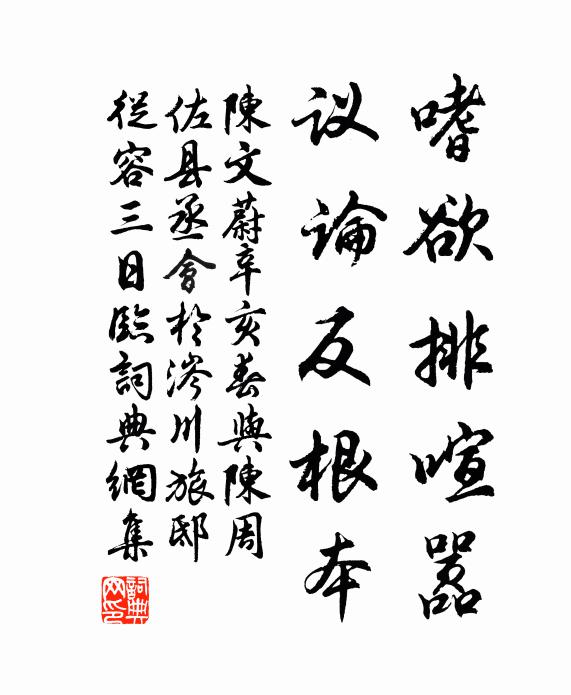 嗜欲排喧嚣
议論反根本
陳文蔚辛亥春與陳周
佐县丞會於涔川旅邸
從容三日臨詞典網集
詞典网印